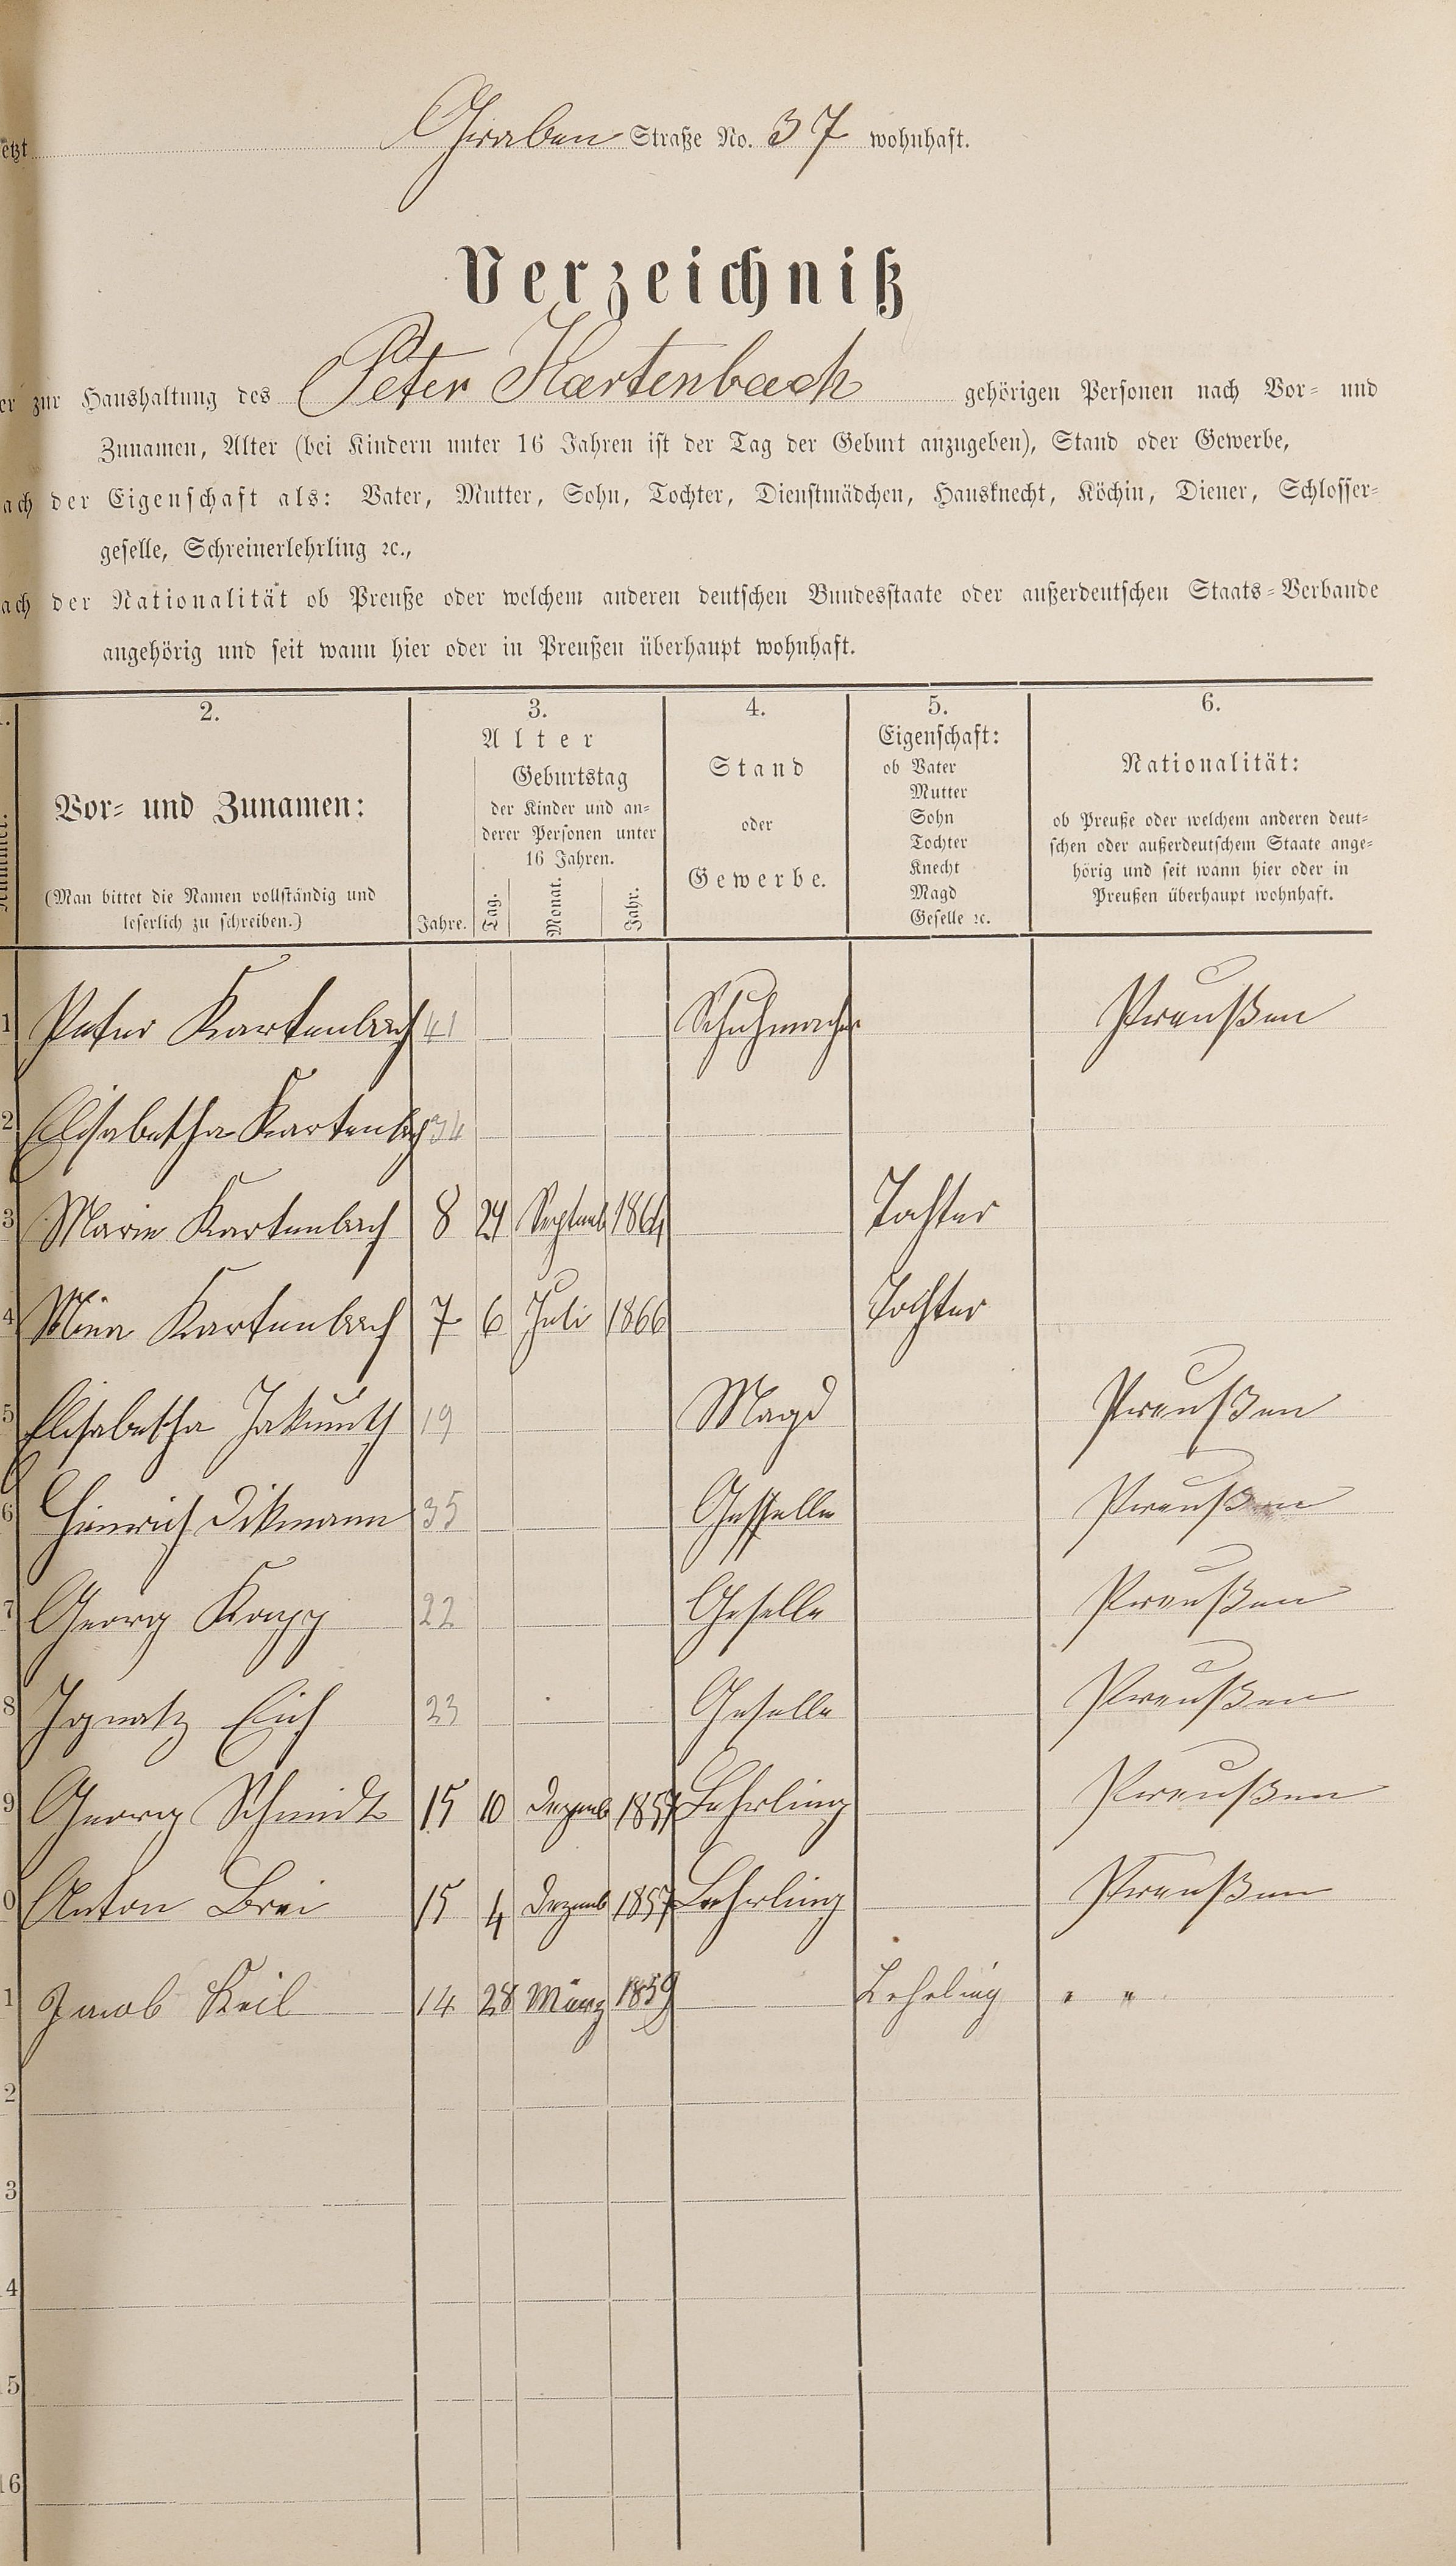 etzt Graben Straße No. 37 wohnhaft.
Verzeichniß
er zur Haushaltung des Peter Kartenbach gehörigen Personen nach Vor- und
Zunamen, Alter (bei Kindern unter 16 Jahren ist der Tag der Geburt anzugeben), Stand oder Gewerbe,
ach der Eigenschaft als: Vater, Mutter, Sohn, Tochter, Dienstmädchen, Hausknecht, Köchin, Diener, Schlosser-
geselle, Schreinerlehrling ꝛc.,
ach der Nationalität ob Preuße oder welchem anderen deutschen Bundesstaate oder außerdeutschen Staats-Verbande
angehörig und seit wann hier oder in Preußen überhaupt wohnhaft.
2.
Vor- und Zunamen:
(Man bittet die Namen vollständig und
leserlich zu schreiben.)
3.
Alter
Jahre.
Geburtstag
der Kinder und an-
derer Personen unter
16 Jahren.
Tag. Monat. Jahr.
4.
Stand
oder
Gewerbe.
5.
Eigenschaft:
ob Vater
Mutter
Sohn
Tochter
Knecht
Magd
Geselle ꝛc.
6.
Nationalität:
ob Preuße oder welchem anderen deut-
schen oder außerdeutschem Staate ange-
hörig und seit wann hier oder in
Preußen überhaupt wohnhaft.
1 Peter Kartenbach 41 Schuhmacher Preußen
2 Elisabetha Kartenbach 34
3 Marie Kartenbach 8 24 Septemb 1864 Tochter
4 Mina Kartenbach 7 6 Juli 1866 Tochter
5 Elisabetha 19 Magd Preußen
6 Heinrich Dikmann 35 Gesselle Preußen
7 Georg Kapp 22 Geselle Preußen
8 Ignatz Eich 23 Geselle Preußen
9 Georg Schmidt 15 10 Dezemb 1857 Lehrling Preußen
0 Anton Brei 15 4 Dezemb 1857 Lehrling Preußen
1 Jacob Keil 14 28 März 1859 Lehrling " "
2
3
4
5
16